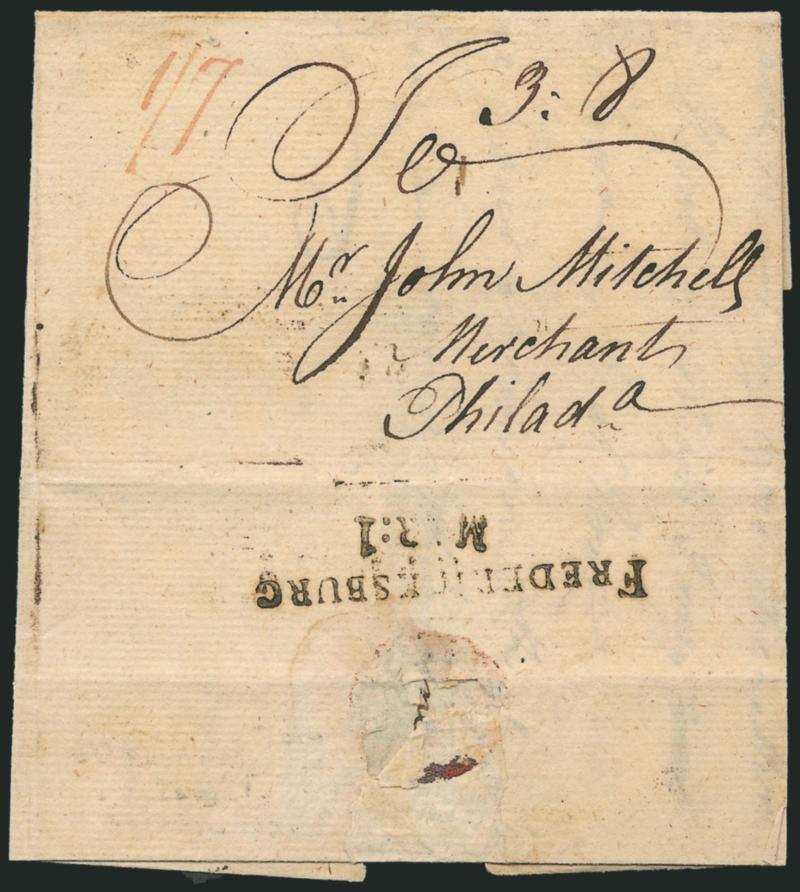 1/7
3:8
To
Mr. John Mitchell
Merchant
Philada
FREDERICKSBURG
MAR:1